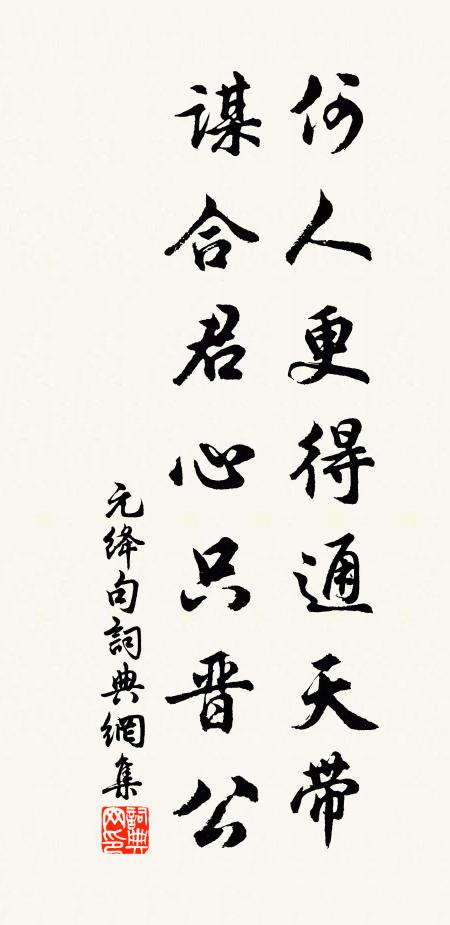 何人更得通天带
謀合君心只晋公
元绛句詞典網集
詞典网印